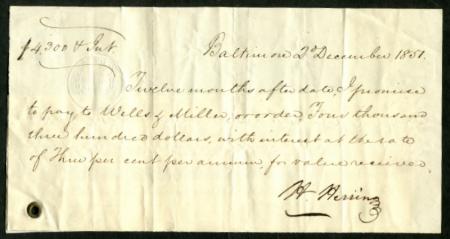 $4300 & Int Baltimore 2d December 1851.
Twelve months after date, I promise
to pay to Wells & Miller, or order, Four thousand
three hundred dollars, with interest at the rate
of Three per cent per annum, for value received
H. Herring